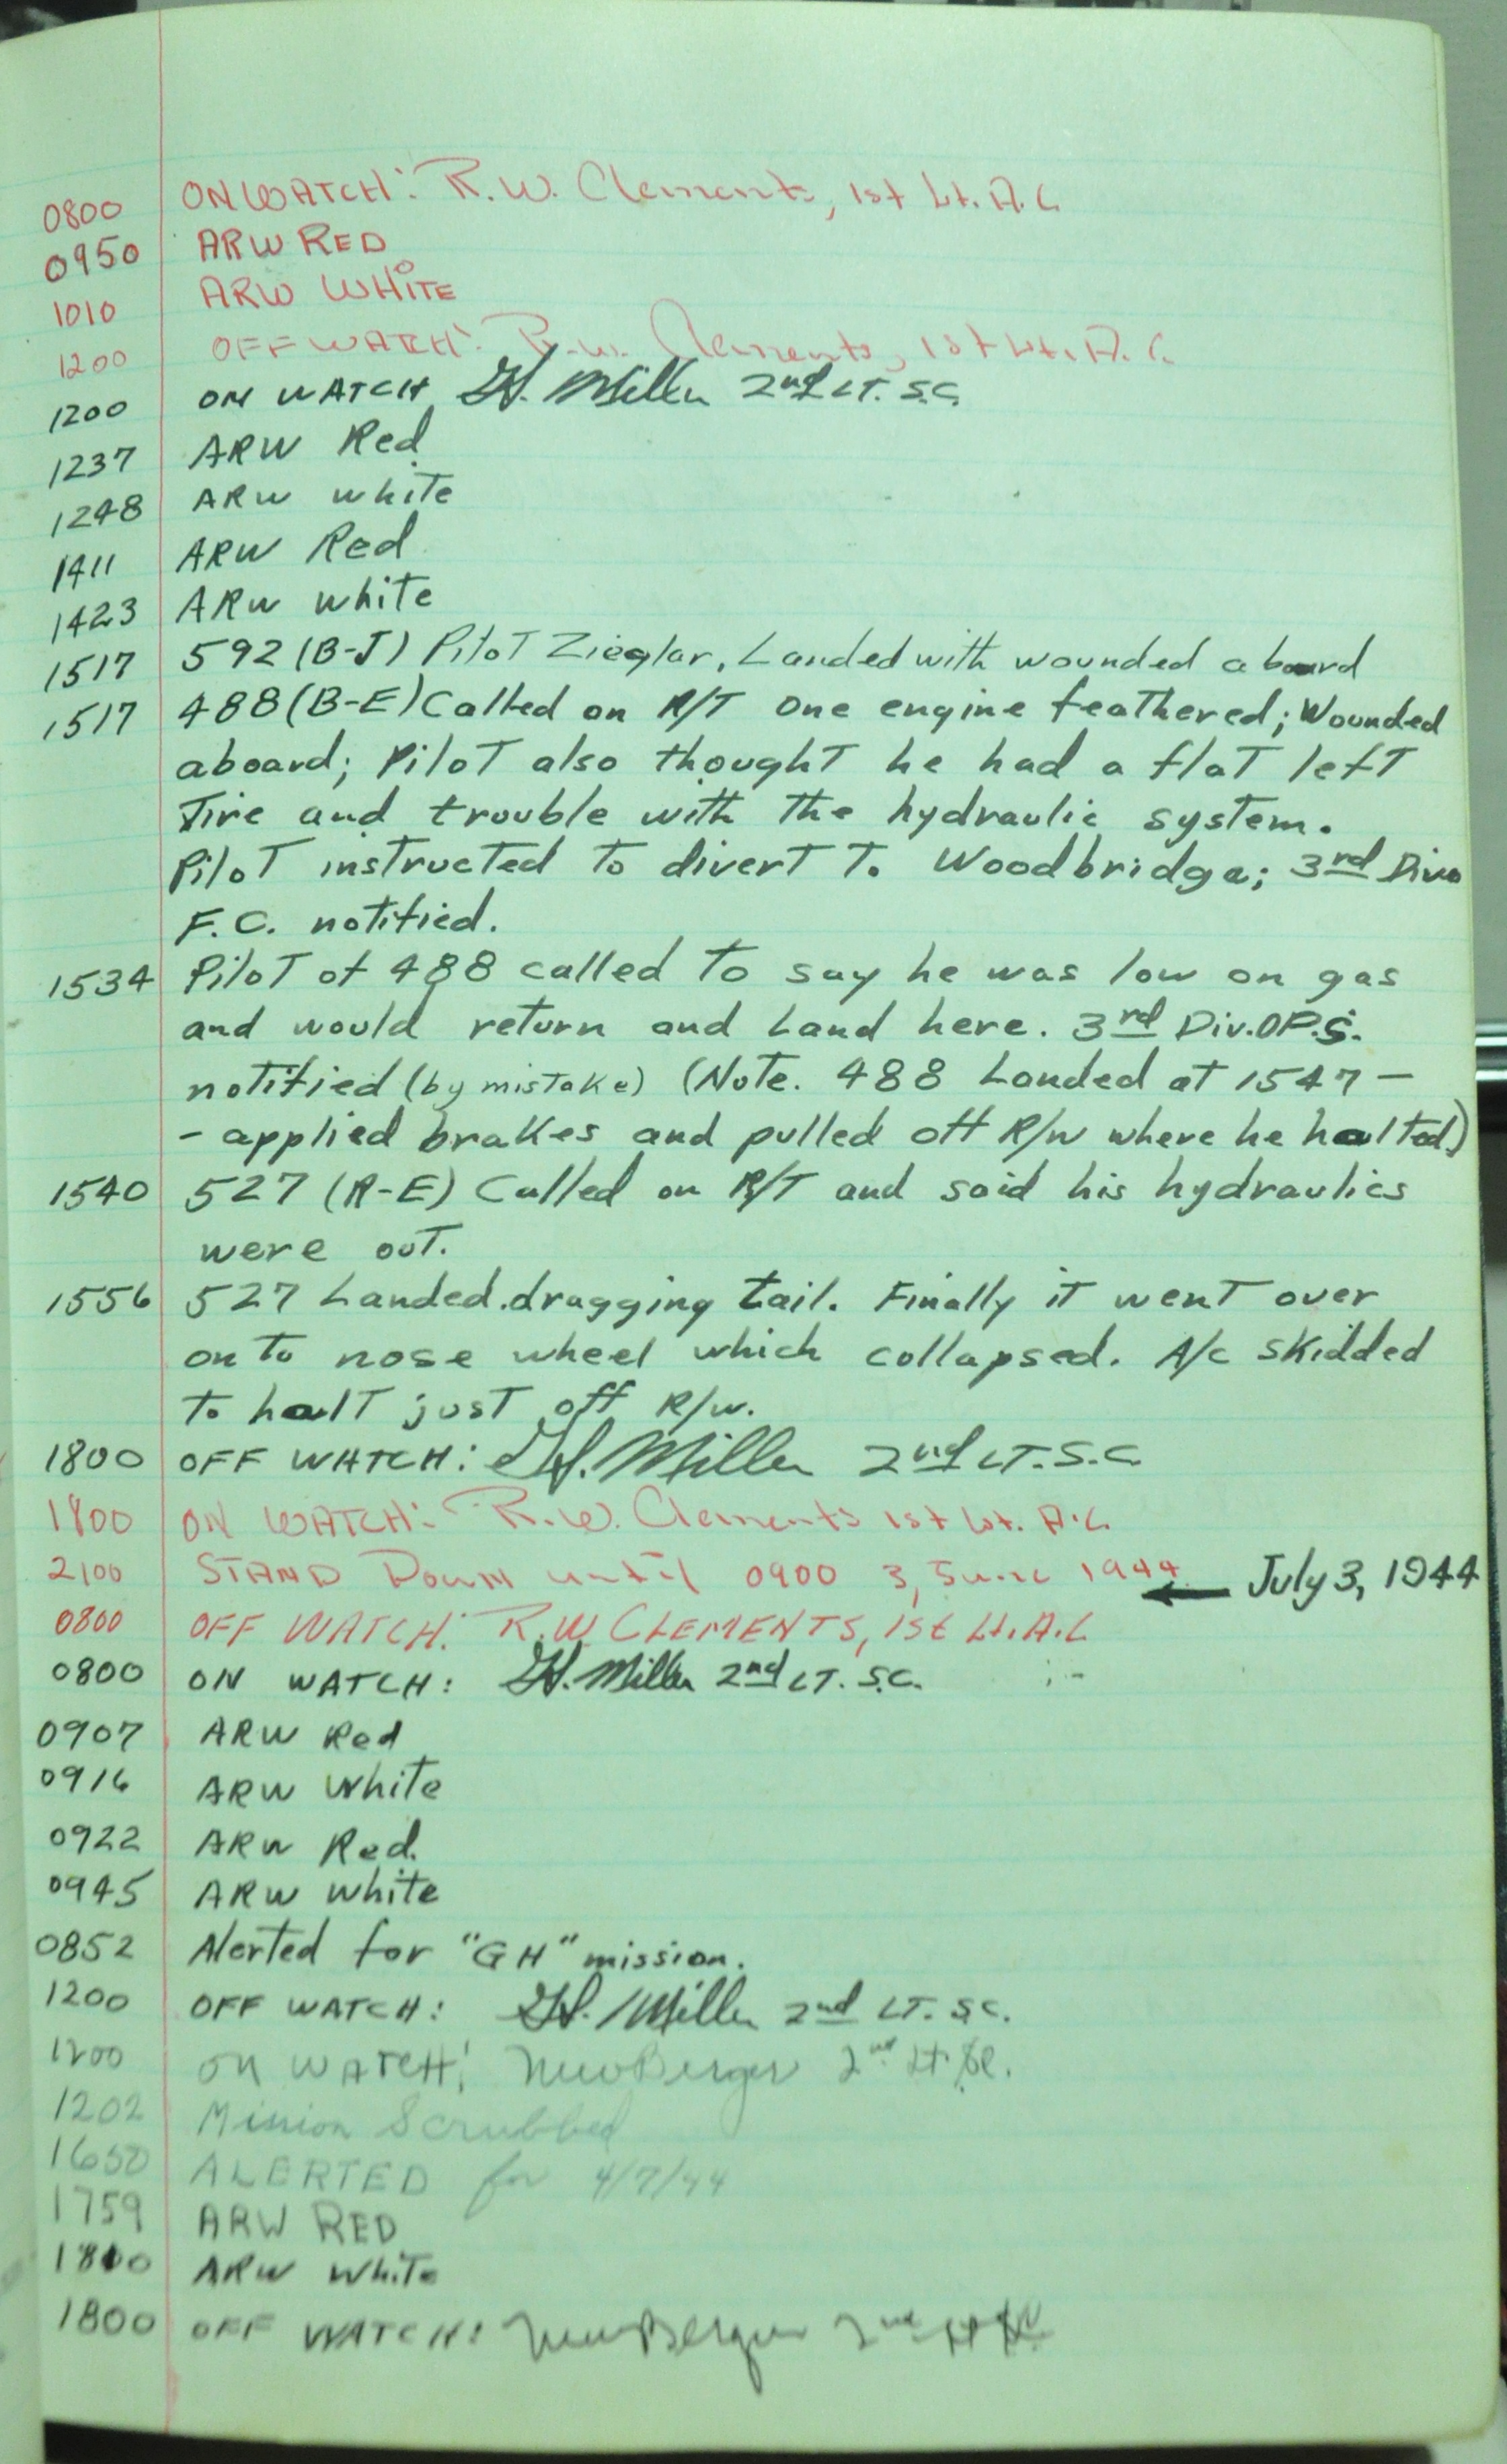 0800 ON WATCH: R.W. Clements, 1st Lt. A.C.
0950 ARW RED
1010 ARW WHITE
1200 OFF WATCH: R.W. Clements, 1st Lt. A.C.
1200 ON WATCH H. Miller 2nd LT. S.C.
1237 ARW Red
1248 ARW white
1411 ARW Red
1423 ARW white
1517 592 (B-J) Pilot Zieglar, Landed with wounded aboard
1517 488 (B-E) Called on R/T One engine feathered; Wounded
aboard; Pilot also thought he had a flat left
Tire and trouble with the hydraulic system.
Pilot instructed to divert to Woodbridge; 3rd Div.
F.C. notified.
1534 Pilot of 488 called to say he was low on gas
and would return and Land here. 3rd Div. OP.S.
notified (by mistake) (Note. 488 Landed at 1547 -
- applied brakes and pulled off R/W where he halted)
1540 527 (R-E) Called on R/T and said his hydraulics
were out.
1556 527 Landed. dragging tail. Finally it went over
on to nose wheel which collapsed. A/c skidded
to halt just off R/w.
1800 OFF WATCH: H. Miller 2nd LT. S.C.
1800 ON WATCH: R.W. Clements 1st Lt. A.C.
2100 STAND Down until 0900 3, June 1944 ← July 3, 1944
0800 OFF WATCH: R.W. CLEMENTS, 1st Lt. A.C.
0800 ON WATCH: H. Miller 2nd LT. S.C.
0907 ARW Red
0916 ARW White
0922 ARW Red.
0945 ARW white
0852 Alerted for "GH" mission.
1200 OFF WATCH: H. Miller 2nd LT. S.C.
1200 ON WATCH: NewBerger 2nd Lt.
1202 Mission Scrubbed
1650 ALERTED for 4/7/44
1759 ARW RED
1800 ARW White
1800 OFF WATCH: NewBerger 2nd Lt